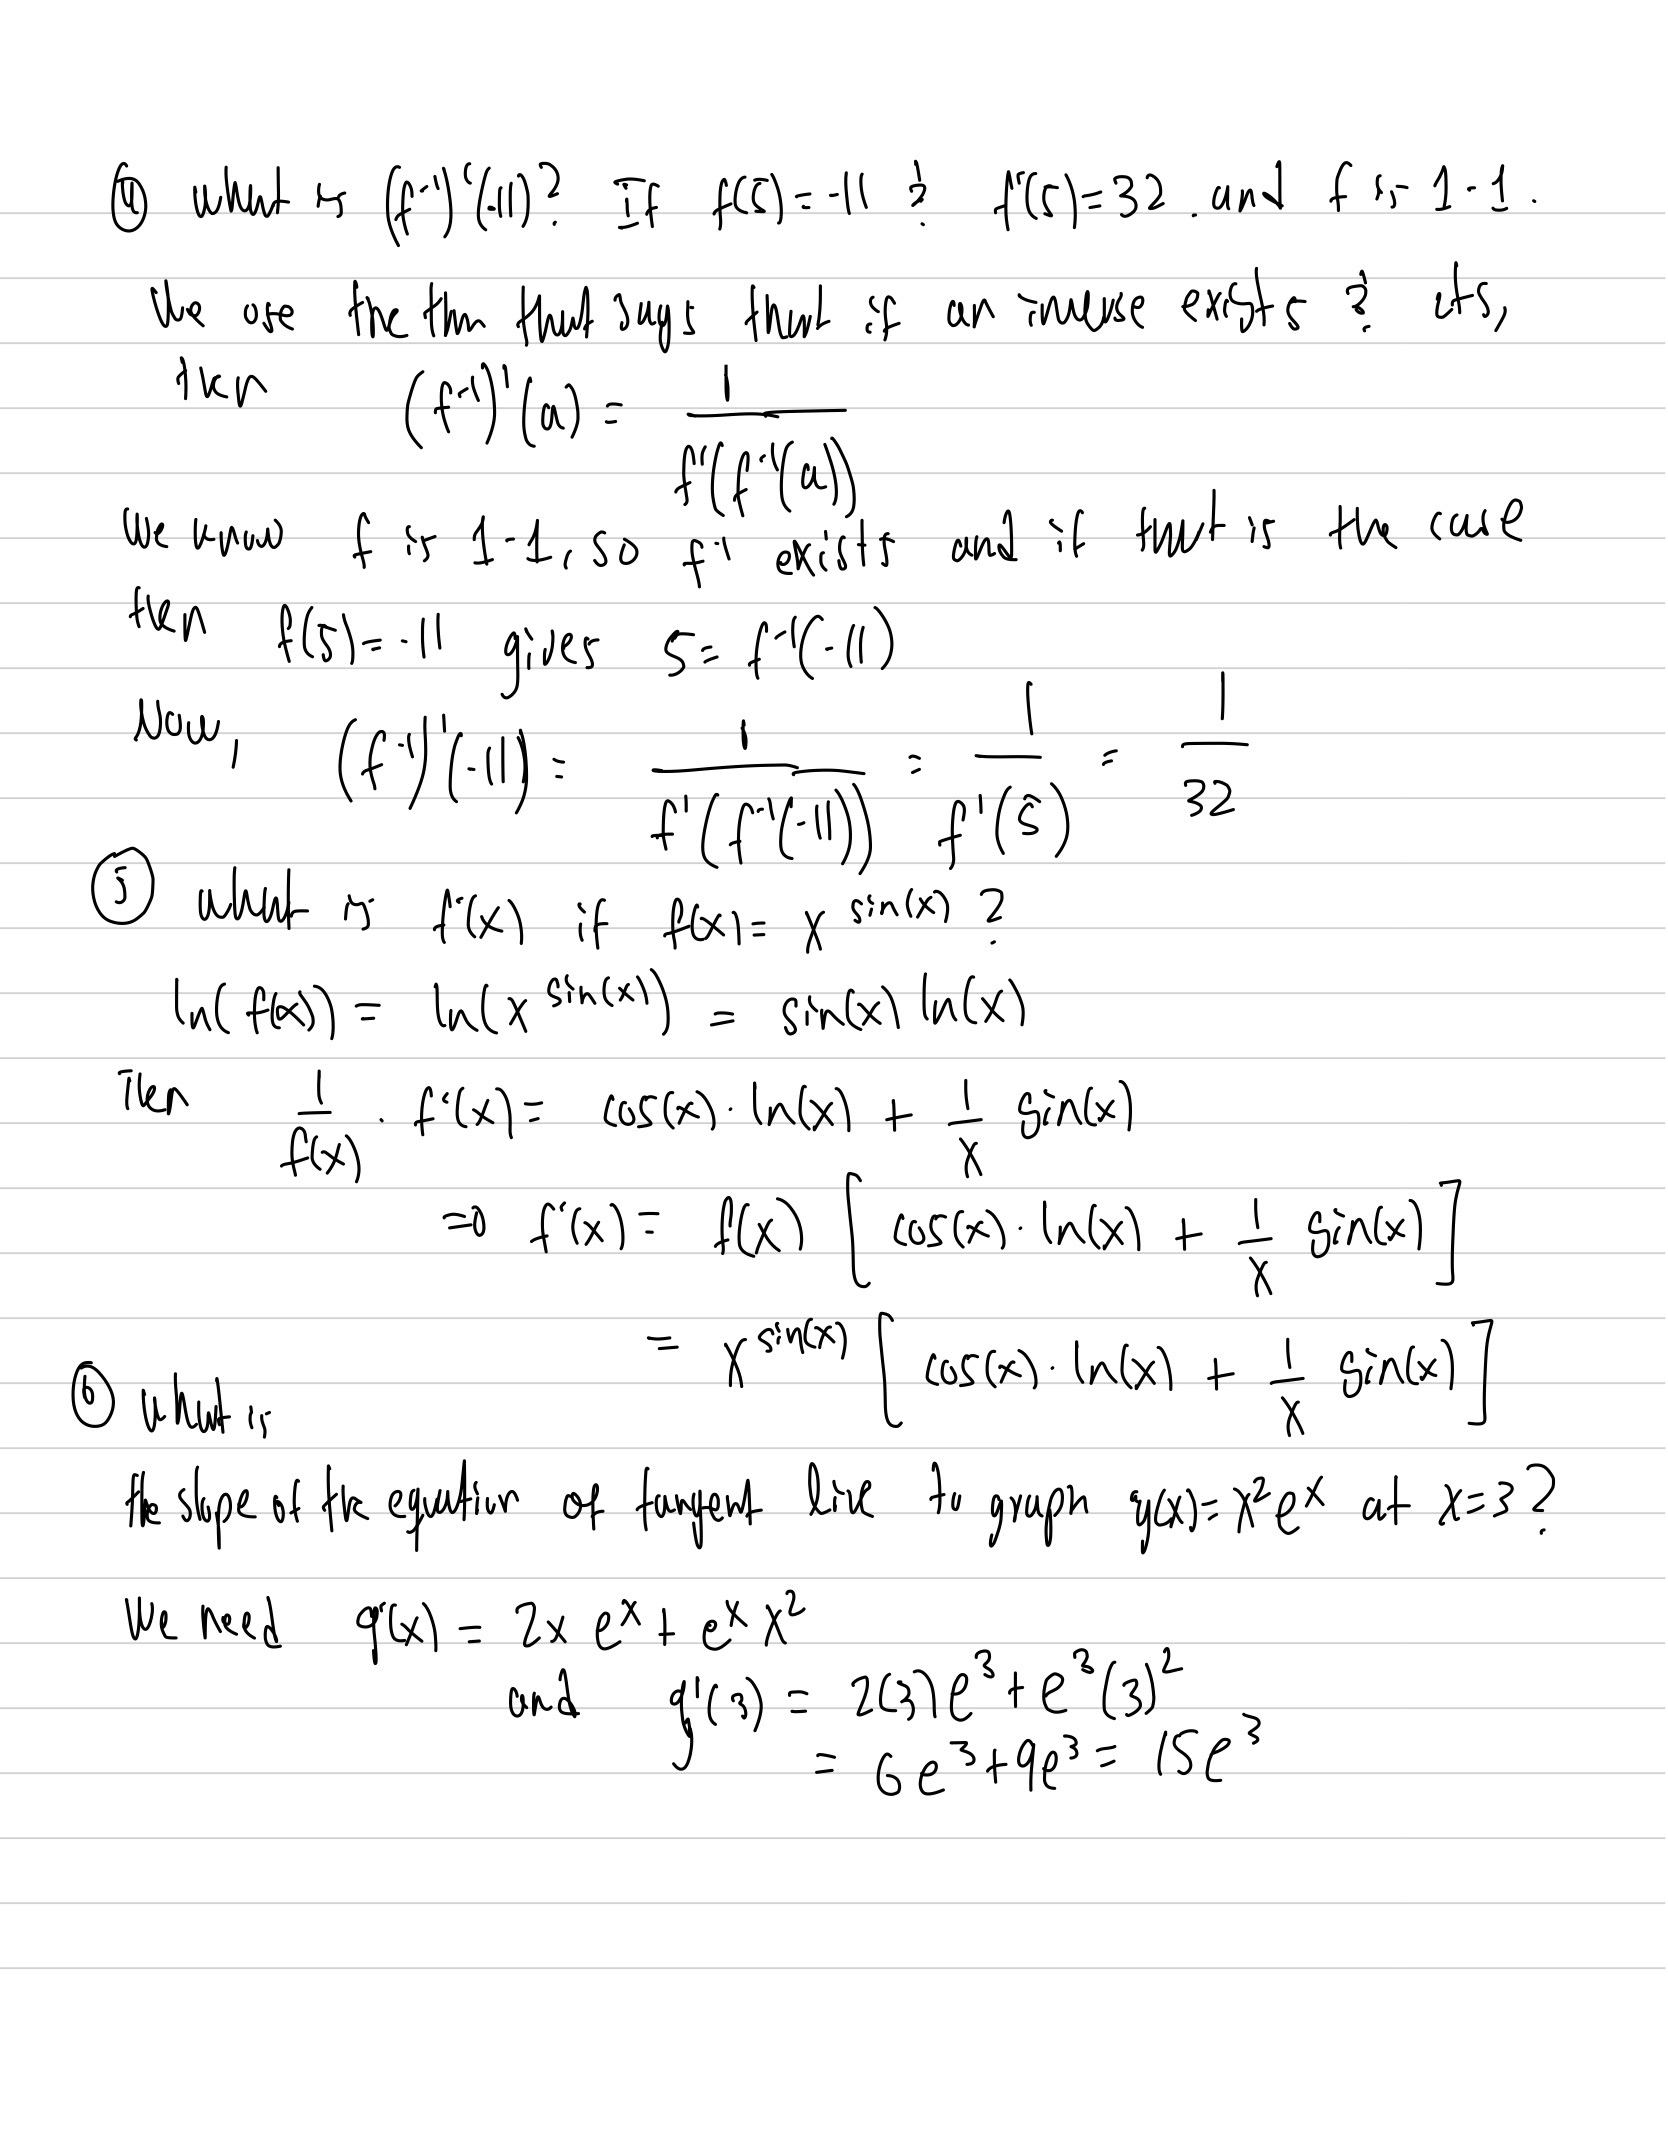 ④ what is (f⁻¹)'(-11)? If f(5)=-11 & f'(5)=32. and f is 1-1.
We use the thm that says that if an inverse exists & cts,
then (f⁻¹)'(a) = 1/f'(f⁻¹(a))
We know f is 1-1, so f⁻¹ exists and if that is the case
then f(5)=-11 gives 5=f⁻¹(-11)
Now, (f⁻¹)'(-11) = 1/f'(f⁻¹(-11)) = 1/f'(5) = 1/32
⑤ what is f'(x) if f(x)= x^sin(x) ?
ln(f(x)) = ln(x^sin(x)) = sin(x) ln(x)
Then 1/f(x) · f'(x) = cos(x)· ln(x) + 1/x sin(x)
⇒ f'(x) = f(x) [cos(x)· ln(x) + 1/x sin(x)]
= x^sin(x) [cos(x)· ln(x) + 1/x sin(x)]
⑥ what is
the slope of the equation of tangent line to graph g(x)=x²eˣ at x=3?
We need g'(x) = 2x eˣ + eˣ x²
and g'(3) = 2(3)e³ + e³(3)²
= 6e³+9e³ = 15e³